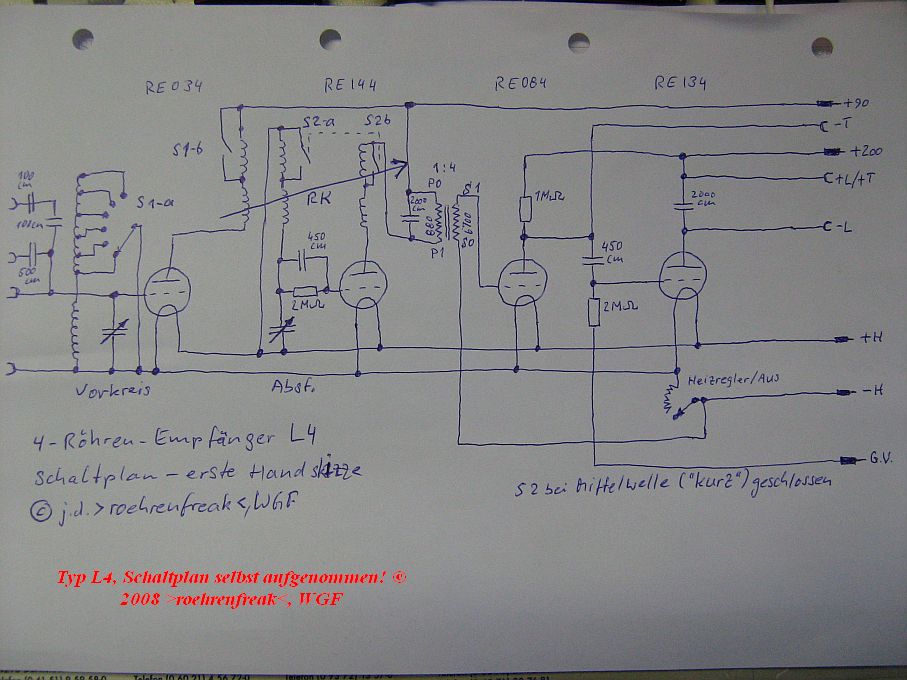 RE034 RE144 RE084 RE134
+90
-T
+200
+L/+T
-L
S1-b
S2-a
S2b
1:4
P0
S1
100 cm
100cm
S1-a
RK
2000 cm
880
P1
6700
S0
1MΩ
2000 cm
450 cm
450 cm
600 cm
2MΩ
2MΩ
+H
Vorkreis
Abst.
Heizregler/Aus
-H
G.V.
4-Röhren-Empfänger L4
Schaltplan - erste Handskizze
© j.d.>roehrenfreak<,WGF
S2 bei Mittelwelle ("kurz") geschlossen
Typ L4, Schaltplan selbst aufgenommen! ©
2008 >roehrenfreak<, WGF